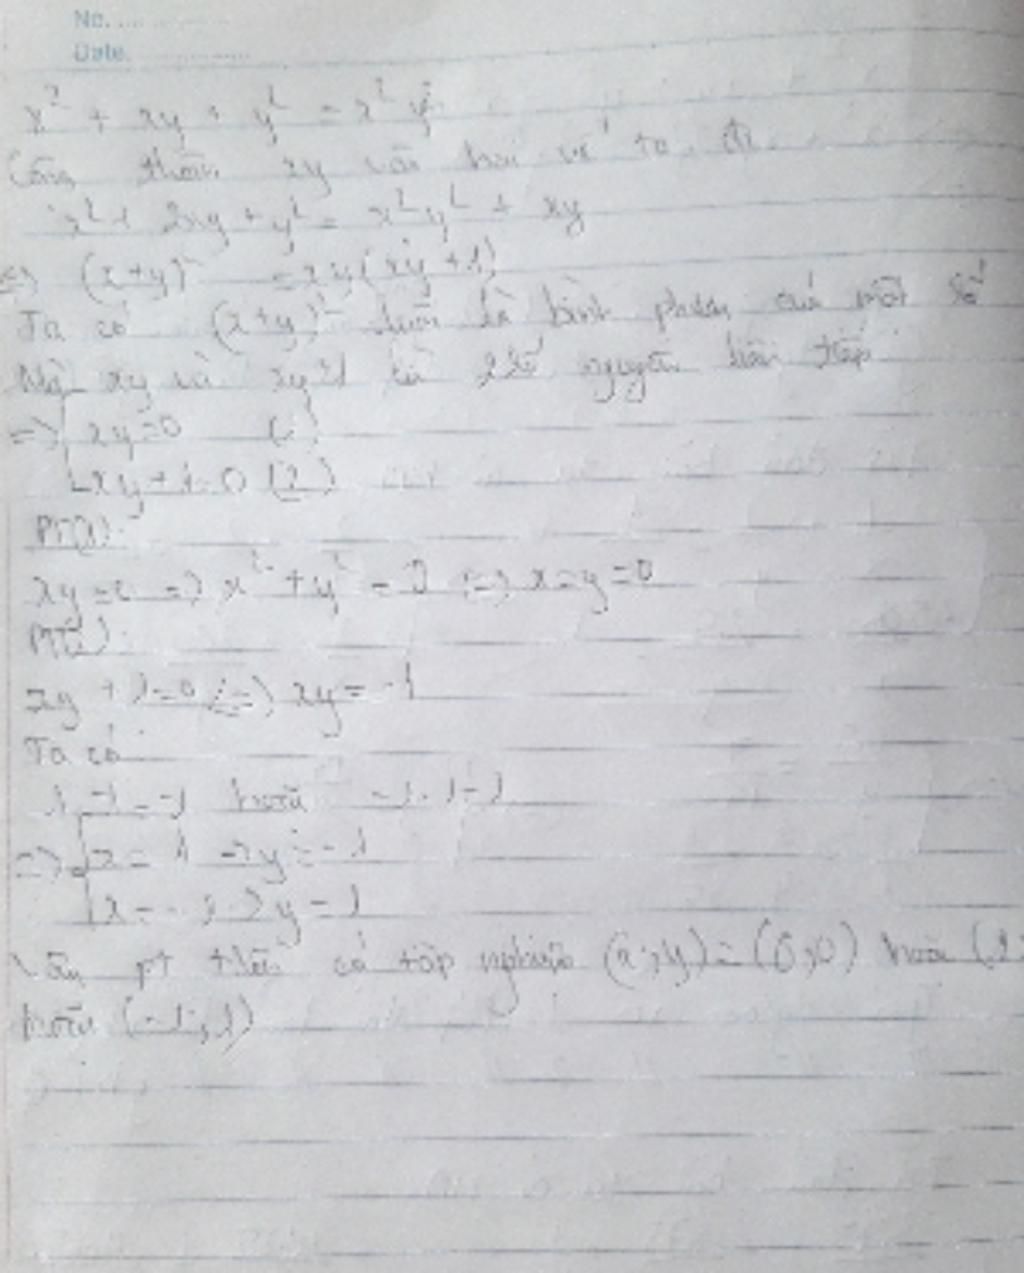 No. ............
Date. ............
x² + xy + y² = x² y²
Cộng thêm xy vào hai vế ta đc
x² + 2xy + y² = x²y² + xy
<=> (x+y)² = xy(xy+1)
Ta có (x+y)² luôn là bình phương của một số
Mà xy và xy+1 là 2 số nguyên liên tiếp
=> [ xy=0 (1)
[ xy+1=0 (2)
PT(1):
xy=0 => x² + y² = 0 <=> x=y=0
PT(2):
xy + 1=0 <=> xy = -1
Ta có
1.-1=-1 hoặc -1.1=-1
=> [ x = 1 -> y = -1
[ x = -1 -> y = 1
Vậy pt trên có tập nghiệm (x;y) = (0;0) hoặc (1;
hoặc (-1;1)